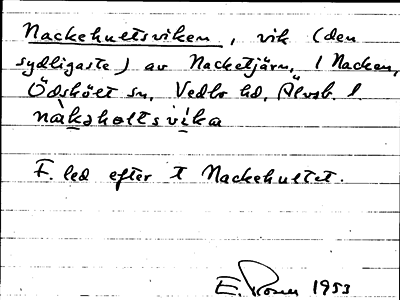 Nackehultsviken, vik (den
sydligaste) av Nacketjärn, l Nacken,
Ödskölt sn, Vedbo hd, Älvsb. l.
nàkəholtsvika
F. led efter t Nackehultet.
E. 1953